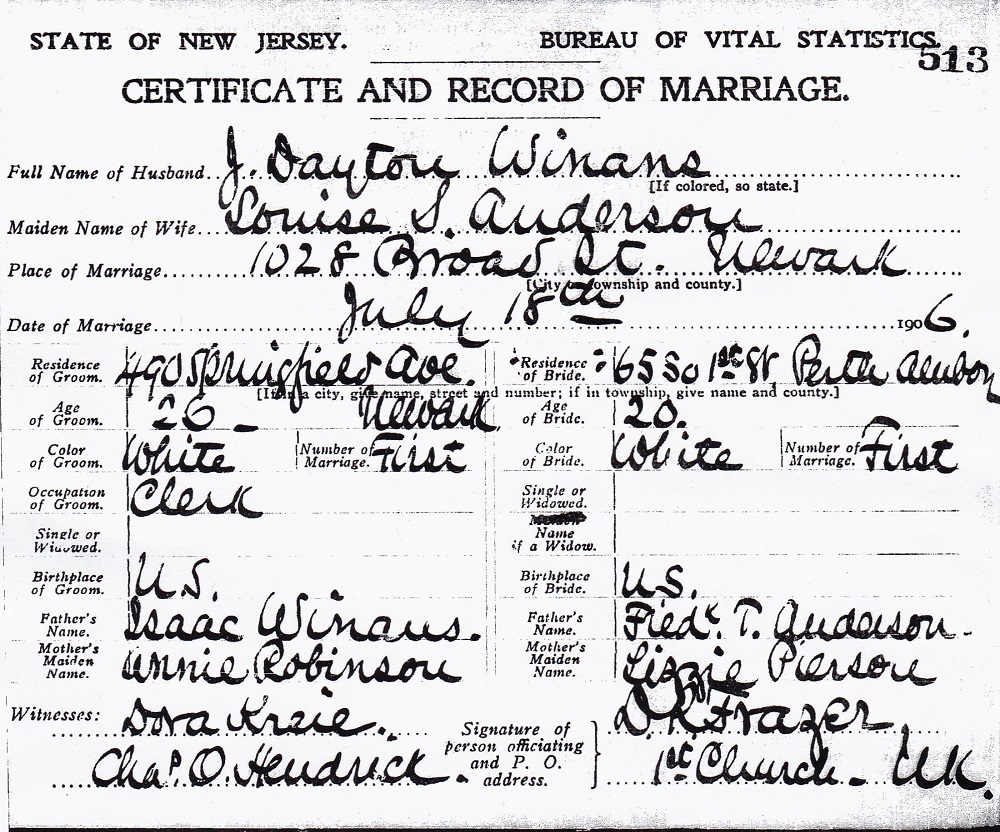 STATE OF NEW JERSEY. BUREAU OF VITAL STATISTICS.
513
CERTIFICATE AND RECORD OF MARRIAGE.
Full Name of Husband J. Dayton Winans
[If colored, so state.]
Maiden Name of Wife Louise S. Anderson
Place of Marriage 1028 Broad St. Newark
[City township and county.]
Date of Marriage July 18th 1906.
Residence of Groom. 490 Springfield Ave. Newark
Residence of Bride. 65 So 1st St Perth Amboy
[If in a city, give name, street and number; if in township, give name and county.]
Age of Groom. 26 Age of Bride. 20.
Color of Groom. White Number of Marriage. First Color of Bride. White Number of Marriage. First
Occupation of Groom. Clerk Single or Widowed.
Single or Widowed. Name if a Widow.
Birthplace of Groom. U.S. Birthplace of Bride. U.S.
Father's Name. Isaac Winans. Father's Name. Fredk. T. Anderson.
Mother's Maiden Name. Annie Robinson Mother's Maiden Name. Lizzie Pierson
Witnesses: Dora
Chas. O. Hendrick.
Signature of person officiating and P. O. address. D. R. Frazer
1st Church - NK.